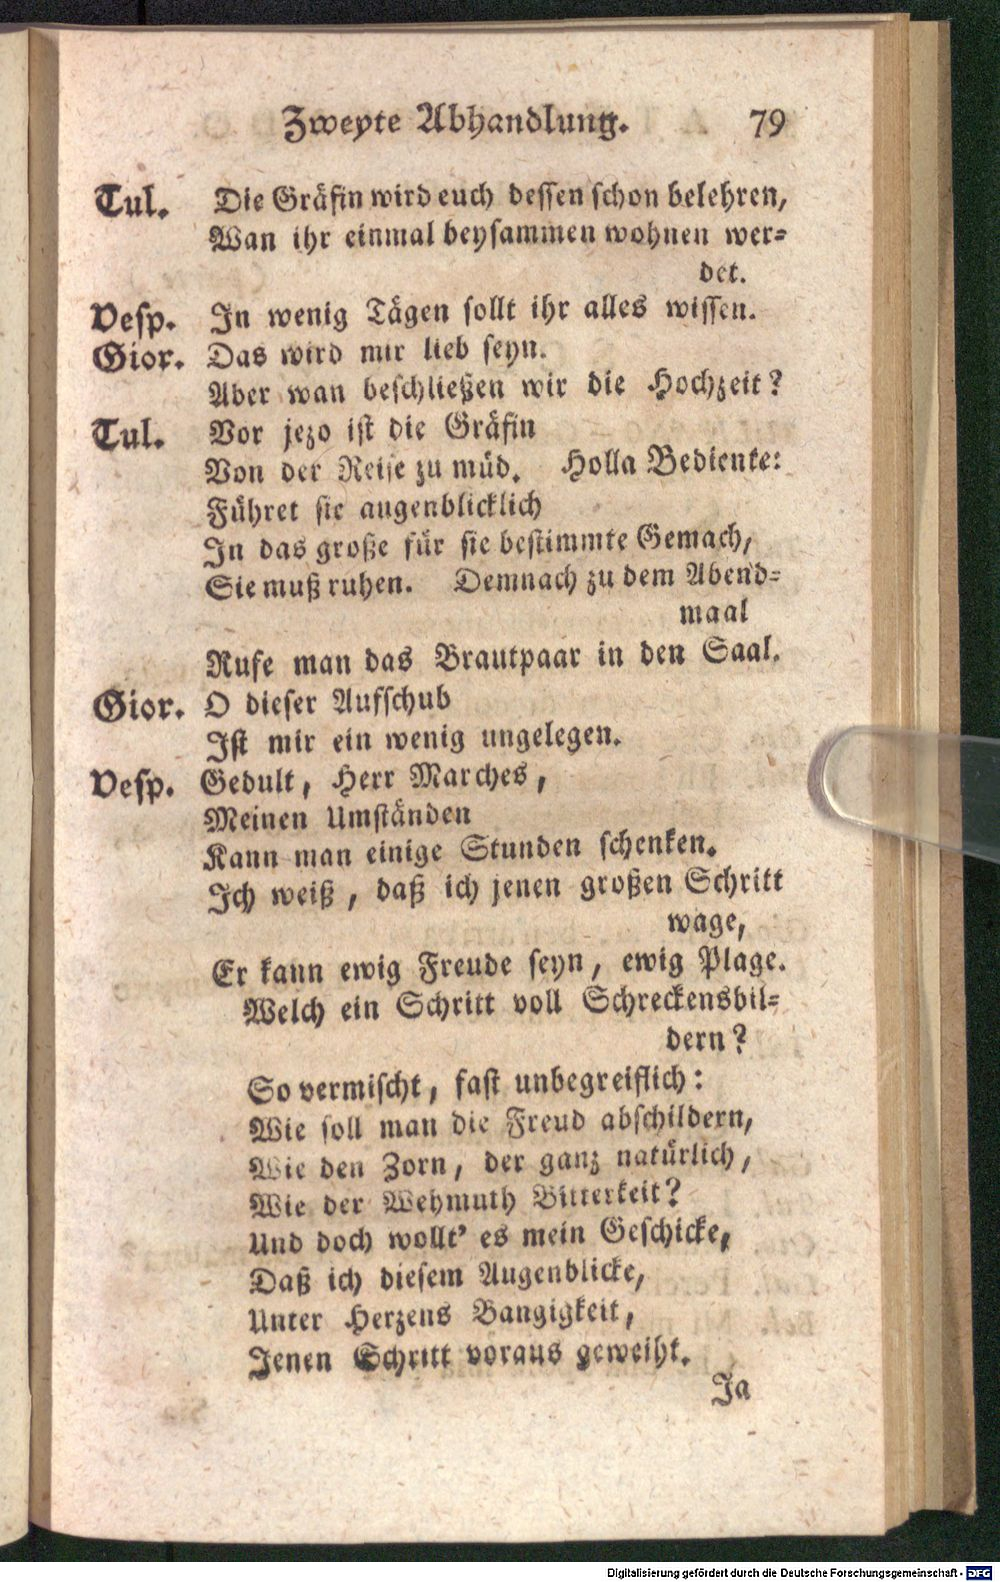 Zweyte Abhandlung. 79
Tul. Die Gräfin wird euch dessen schon belehren,
Wan ihr einmal beysammen wohnen wer-
det.
Vesp. In wenig Tägen sollt ihr alles wissen.
Gior. Das wird mir lieb seyn.
Aber wan beschließen wir die Hochzeit?
Tul. Vor jezo ist die Gräfin
Von der Reise zu müd. Holla Bediente:
Führet sie augenblicklich
In das große für sie bestimmte Gemach,
Sie muß ruhen. Demnach zu dem Abend-
maal
Rufe man das Brautpaar in den Saal.
Gior. O dieser Aufschub
Ist mir ein wenig ungelegen.
Vesp. Gedult, Herr Marches,
Meinen Umständen
Kann man einige Stunden schenken.
Ich weiß, daß ich jenen großen Schritt
wage,
Er kann ewig Freude seyn, ewig Plage.
Welch ein Schritt voll Schreckensbil-
dern?
So vermischt, fast unbegreiflich:
Wie soll man die Freud abschildern,
Wie den Zorn, der ganz natürlich,
Wie der Wehmuth Bitterkeit?
Und doch wollt' es mein Geschicke,
Daß ich diesem Augenblicke,
Unter Herzens Bangigkeit,
Jenen Schritt voraus geweiht.
Ja
Digitalisierung gefördert durch die Deutsche Forschungsgemeinschaft - DFG